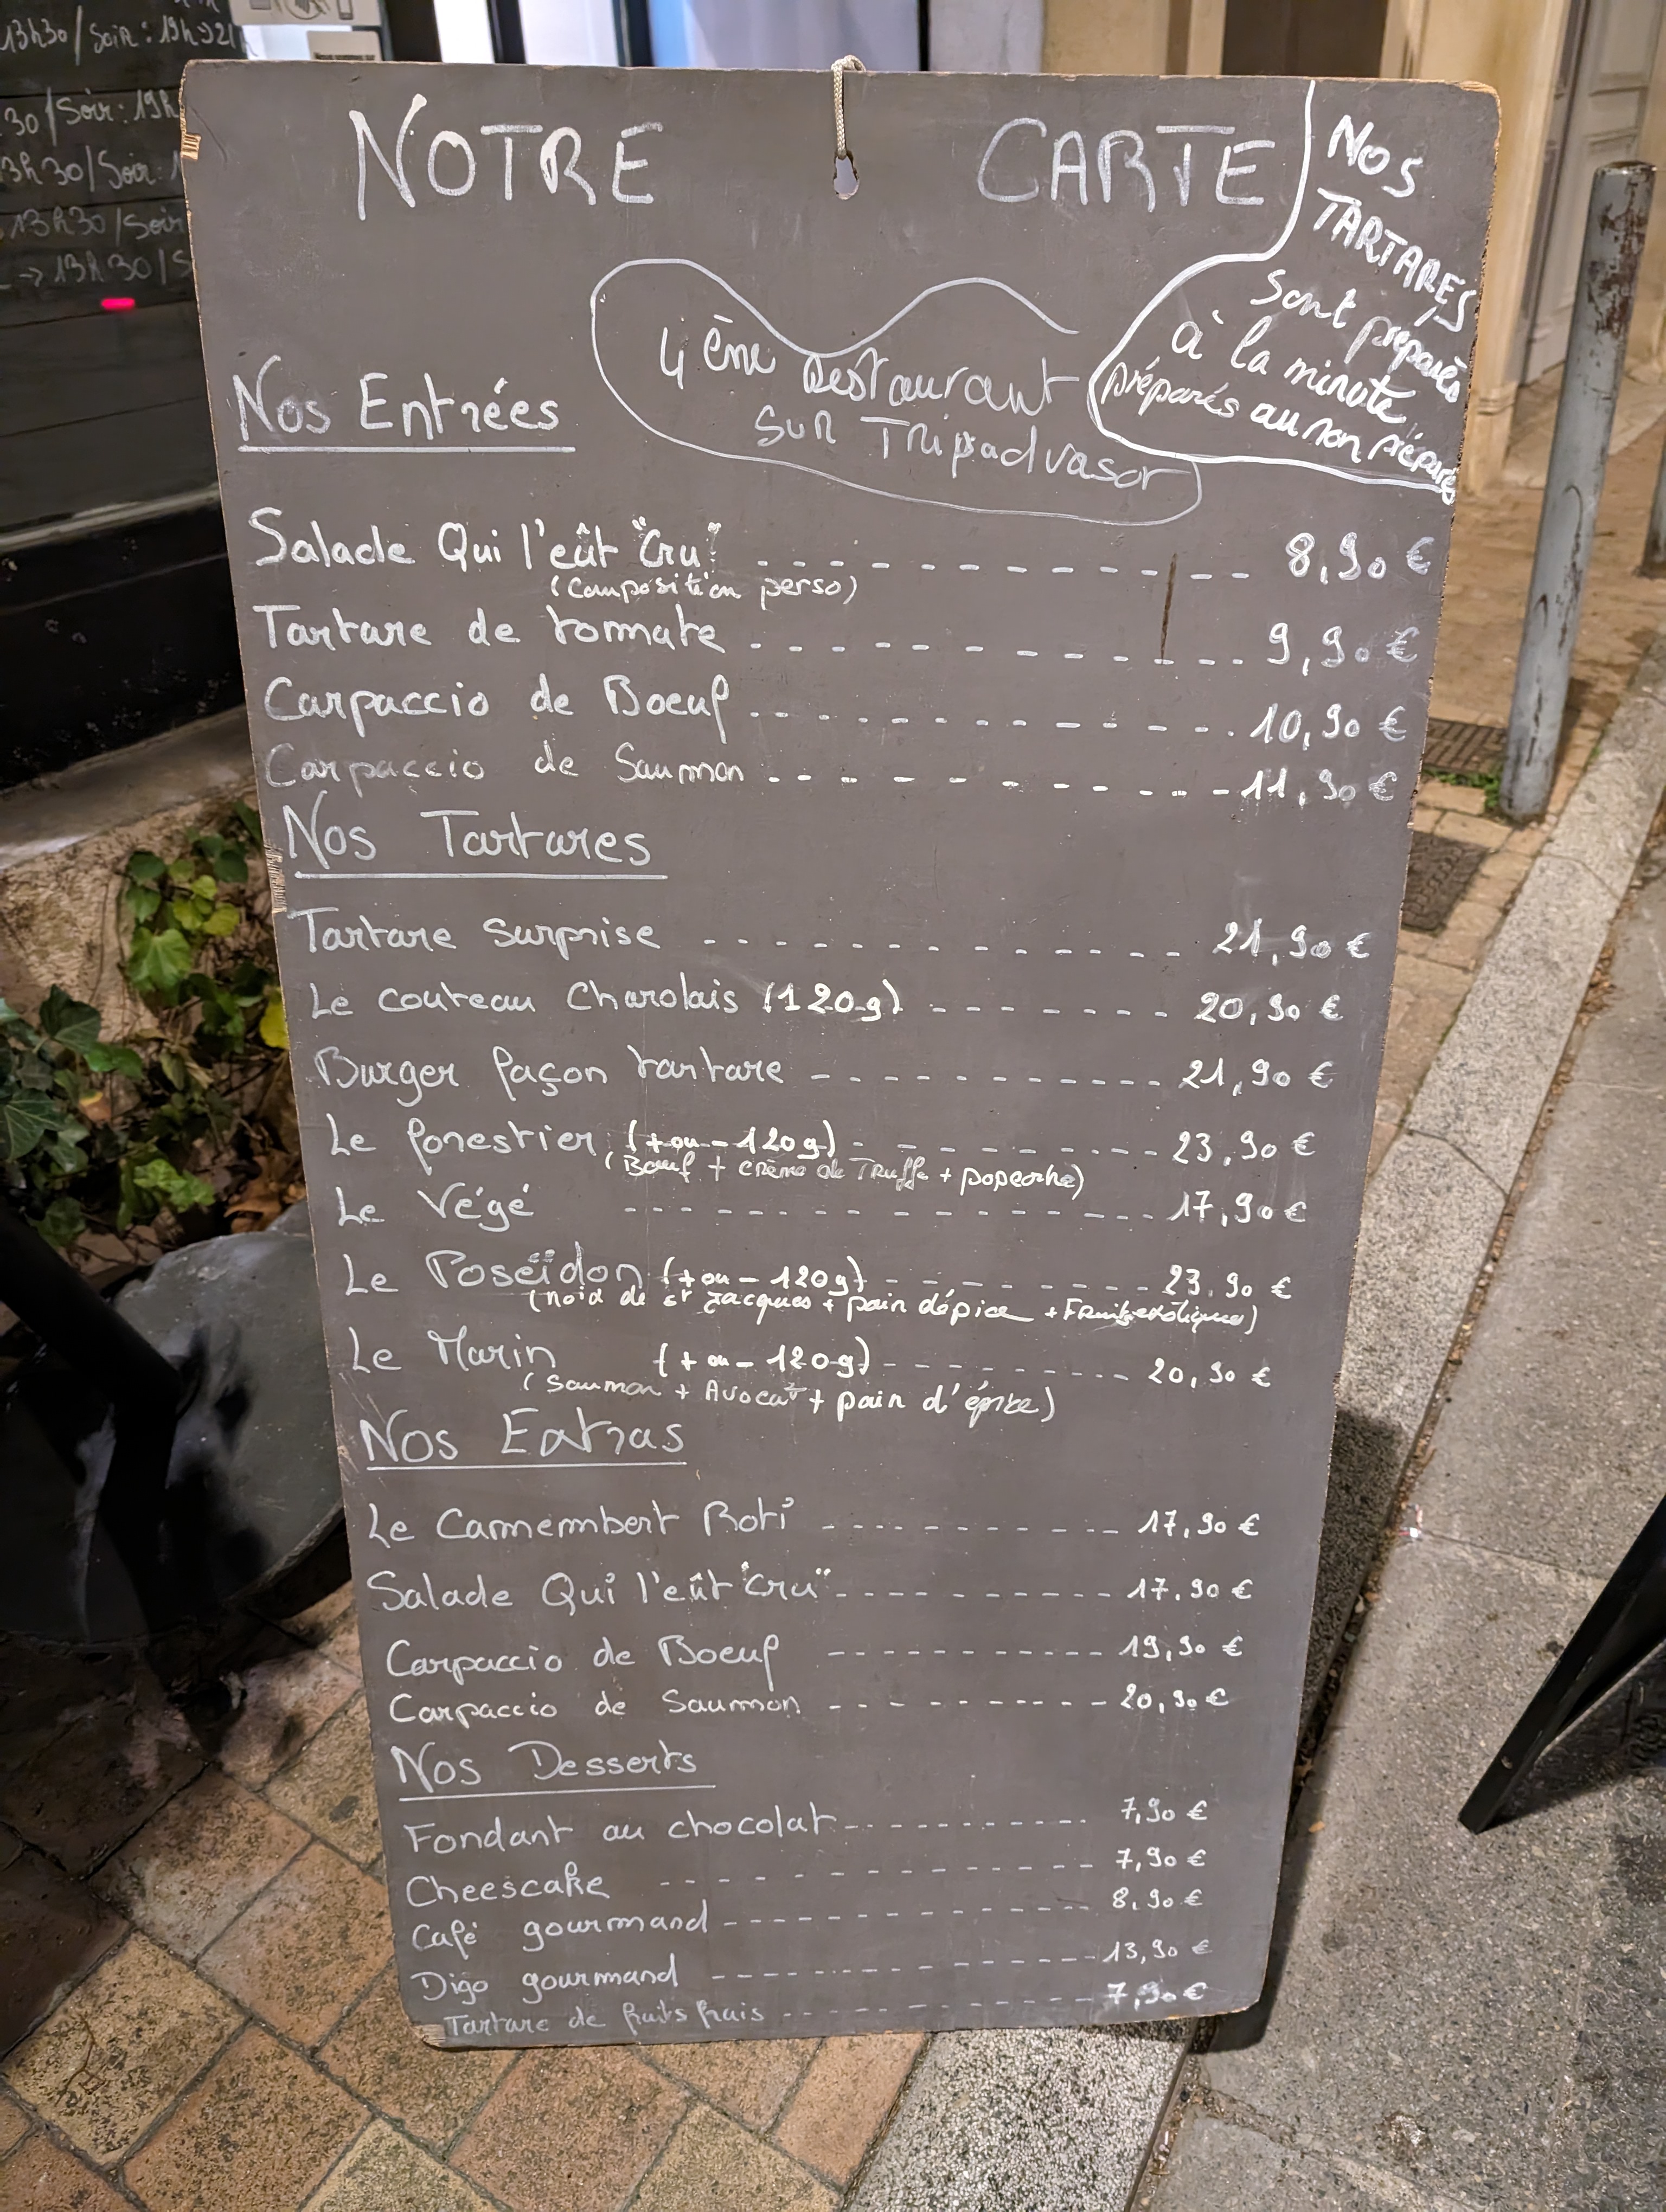 13h30/Soir: 19h→21h
30/Soir: 19h
13h30/Soir:
13h30/Soir
→ 13h30/S
NOTRE CARTE
NOS
TARTARES
Sont préparés
à la minute,
préparés au non préparés
4ème Restaurant
sur Tripadvasor
Nos Entrées
Salade Qui l'eût "Cru" 8,90 €
(Composition perso)
Tartare de tomate 9,90 €
Carpaccio de Boeuf 10,90 €
Carpaccio de Saumon 11,90 €
Nos Tartares
Tartare surprise 21,90 €
Le couteau Charolais (120g) 20,90 €
Burger façon tartare 21,90 €
Le forestier (+ ou - 120g) 23,90 €
(Boeuf + crème de Truffe +
Le Végé 17,90 €
Le Poseïdon (+ ou - 120g) 23,90 €
de st Jacques + pain dépice + Fruits exotiques)
Le Marin (+ ou - 120g) 20,90 €
(Saumon + Avocat + pain d'épice)
Nos Extras
Le Camembert Roti 17,90 €
Salade Qui l'eût "Cru" 17,90 €
Carpaccio de Boeuf 19,90 €
Carpaccio de Saumon 20,90 €
Nos Desserts
Fondant au chocolat 7,90 €
Cheescake 7,90 €
Café gourmand 8,90 €
Digo gourmand 13,90 €
Tartare de fruits frais 7,90 €